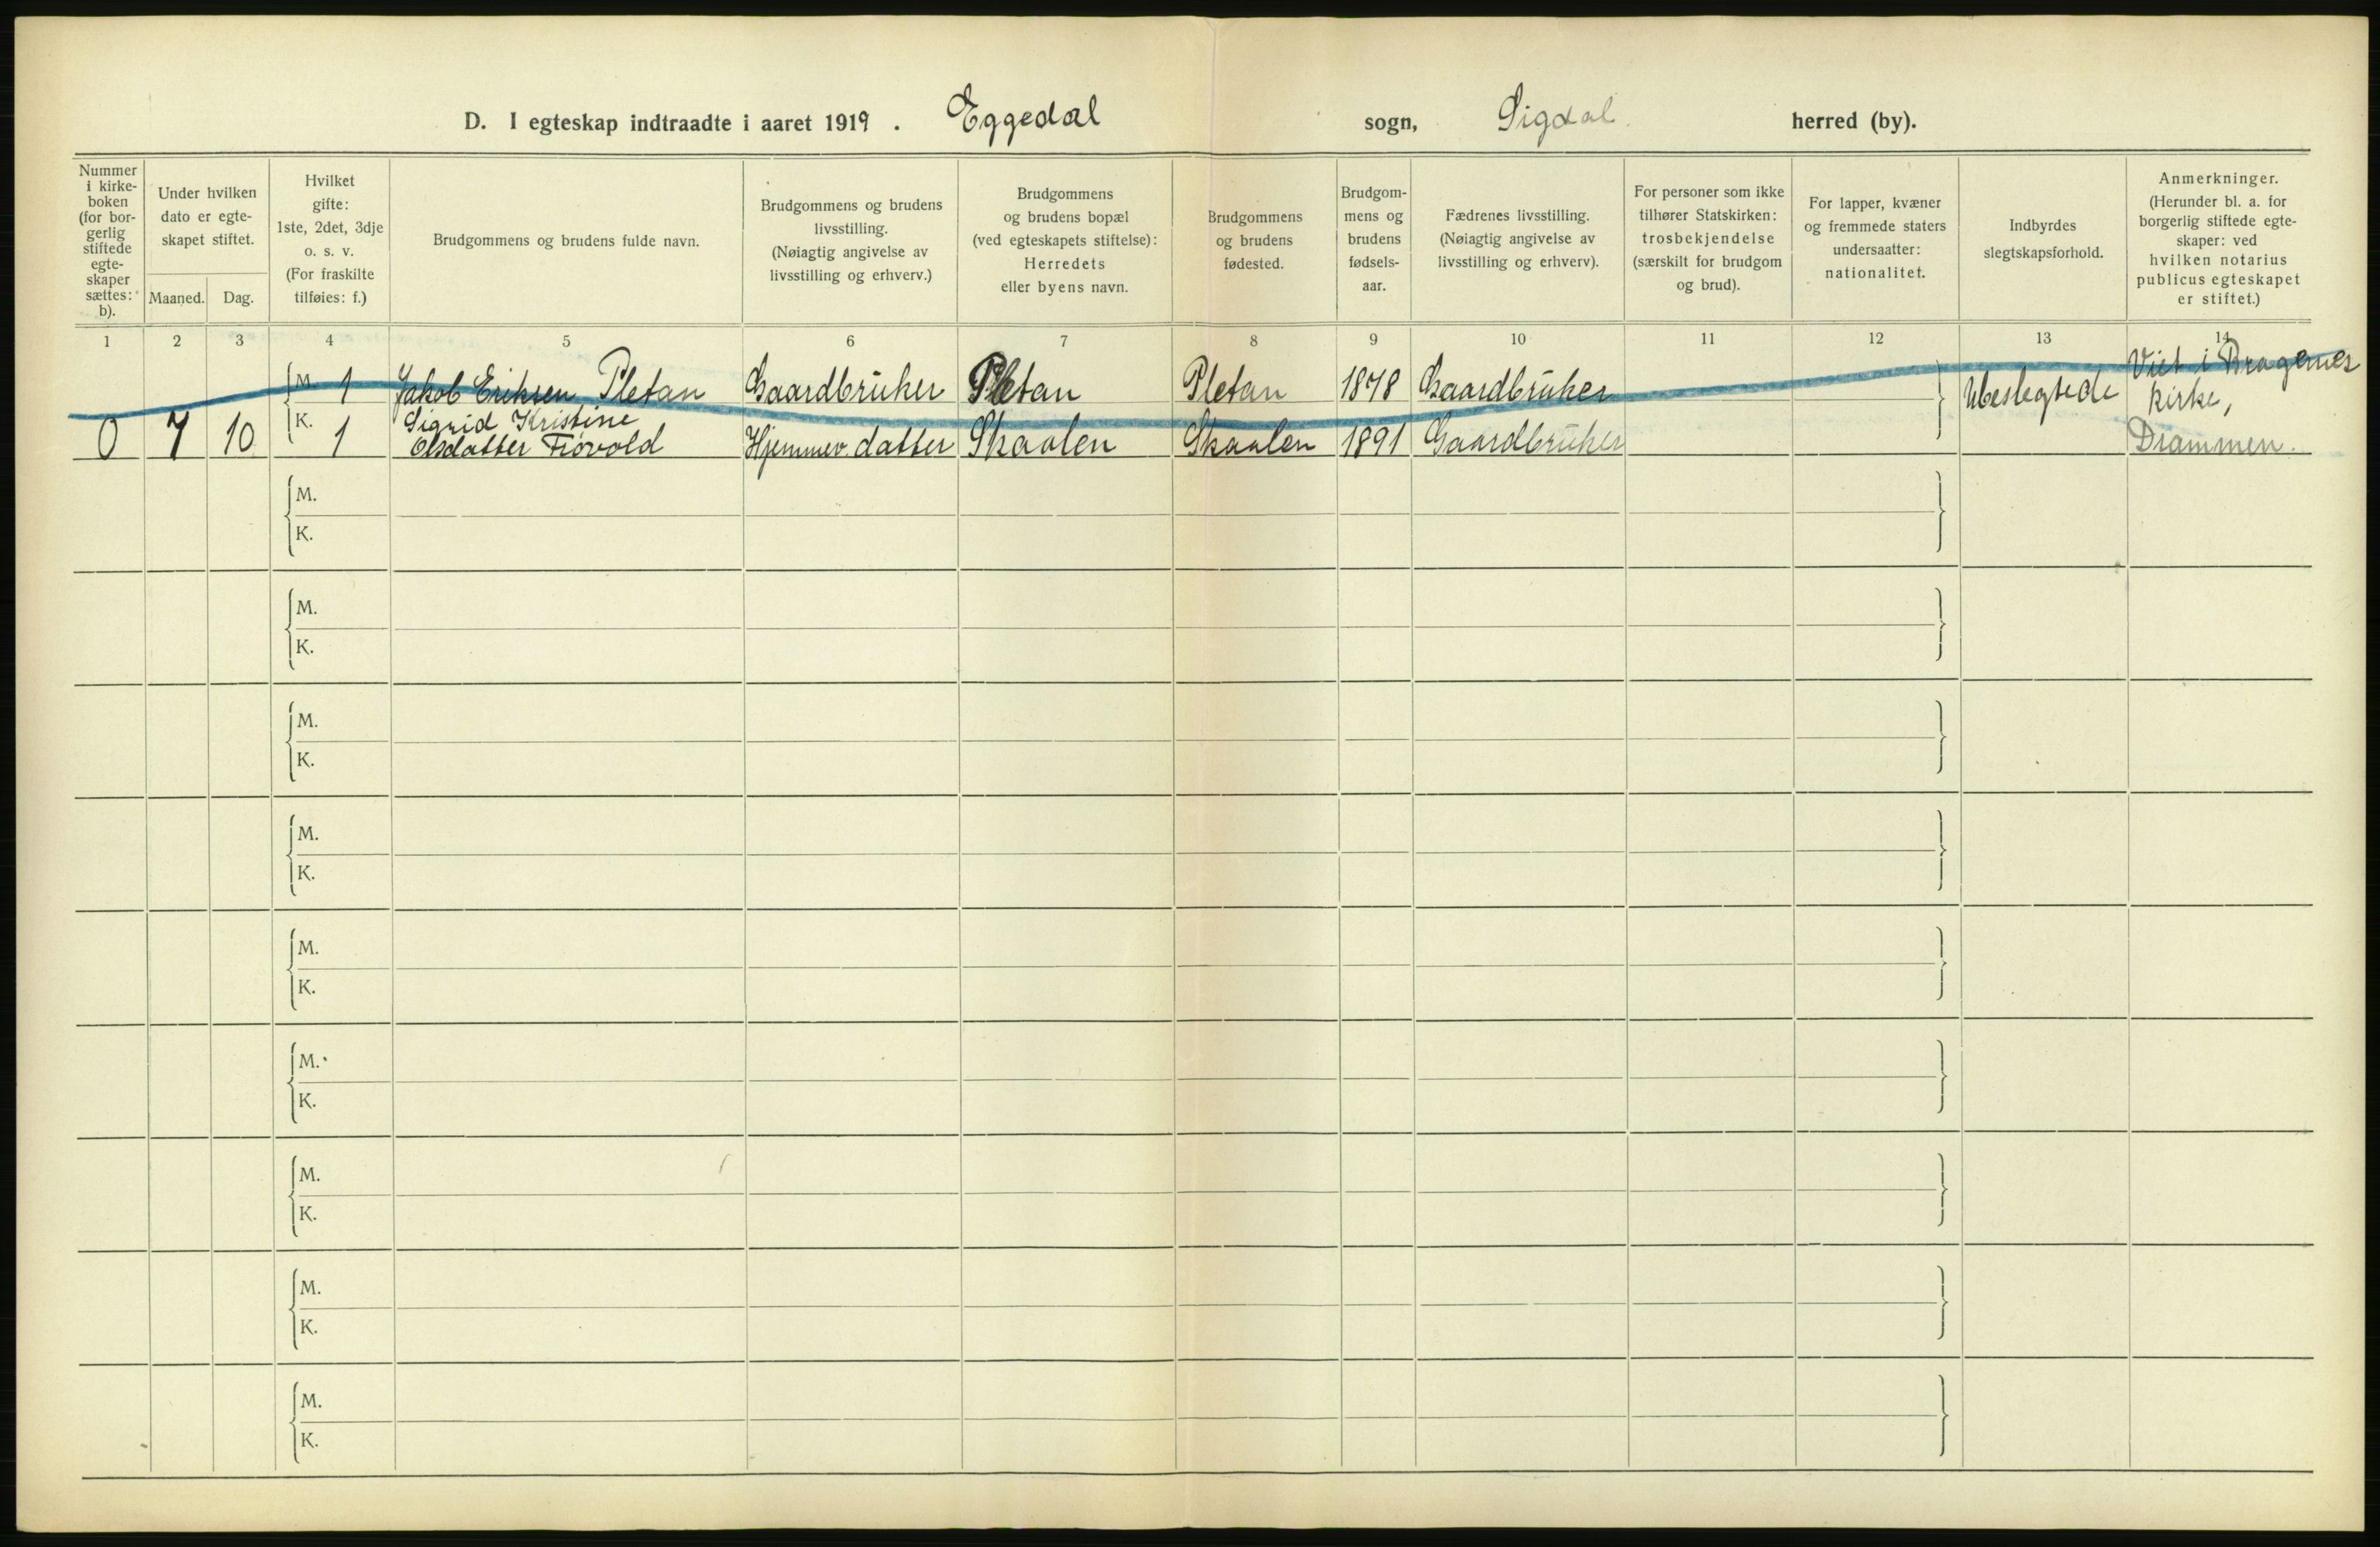 D. I egteskap indtraadte i aaret 1919 . Eggedal sogn, Sigdal herred (by).
Nummer i kirke- boken (for bor- gerlig stiftede egte- skaper sættes: b).
Under hvilken dato er egte- skapet stiftet.
Maaned. Dag.
Hvilket gifte: 1ste, 2det, 3dje o. s. v. (For fraskilte tilføies: f.)
Brudgommens og brudens fulde navn.
Brudgommens og brudens livsstilling. (Nøiagtig angivelse av livsstilling og erhverv.)
Brudgommens og brudens bopæl (ved egteskapets stiftelse): Herredets eller byens navn.
Brudgommens og brudens fødested.
Brudgom- mens og brudens fødsels- aar.
Fædrenes livsstilling. (Nøiagtig angivelse av livsstilling og erhverv).
For personer som ikke tilhører Statskirken: trosbekjendelse (særskilt for brudgom og brud).
For lapper, kvæner og fremmede staters undersaatter: nationalitet.
Indbyrdes slegtskapsforhold.
Anmerkninger. (Herunder bl. a. for borgerlig stiftede egte- skaper: ved hvilken notarius publicus egteskapet er stiftet.)
1 2 3 4 5 6 7 8 9 10 11 12 13 14
M. 1 Jakob Eriksen Pletan Gaardbruker Pletan Pletan 1878 Gaardbruker Ubeslegtede Viet i Bragernes kirke,
0 7 10 K. 1 Sigrid Kristine
Olsdatter Frøvold Hjemmev. datter Skaalen Skaalen 1891 Gaardbruker Drammen.
M.
K.
M.
K.
M.
K.
M.
K.
M.
K.
M.
K.
M.
K.
M.
K.
M.
K.